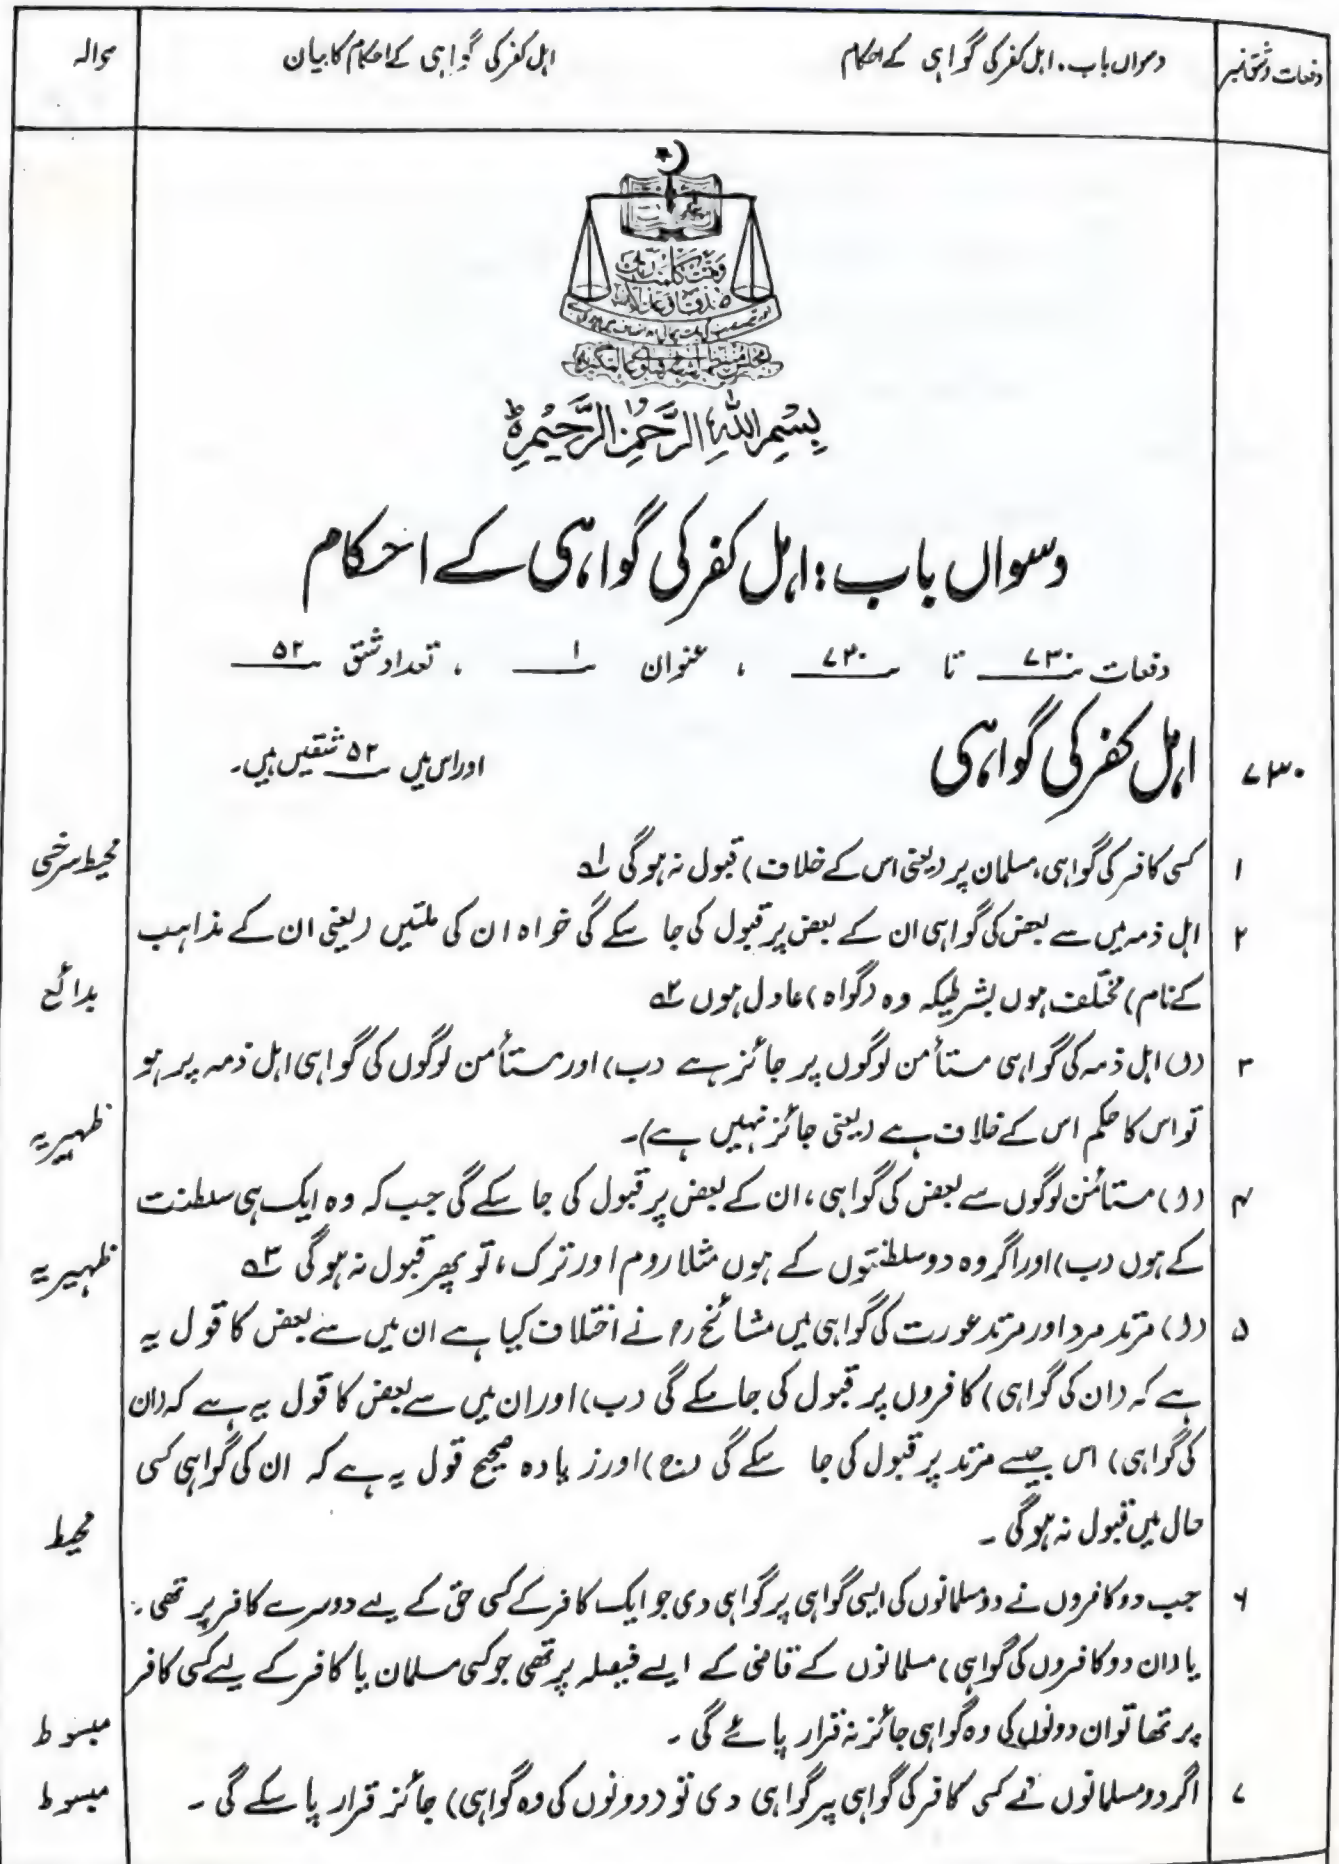 دفعات و شق نمبر
دسواں باب، اہل کفر کی گواہی کے احکام
اہل کفر کی گواہی کے احکام کا بیان
حوالہ
وتمت كلمت ربك
صدقا وعدلا
بِسْمِ اللّٰهِ الرَّحْمٰنِ الرَّحِيْمِ ط
دسواں باب: اہل کفر کی گواہی کے احکام
دفعات ۷۳۰ تا ۷۳۰ ، عنوان ۱ ، تعداد شق ۵۲
۷۳۰ اہل کفر کی گواہی اور اس میں ۵۲ شقیں ہیں۔
۱ کسی کافر کی گواہی، مسلمان پر (یعنی اس کے خلاف) قبول نہ ہوگی ۱؎ محیط سرخسی
۲ اہل ذمہ میں سے بعض کی گواہی ان کے بعض پر قبول کی جا سکے گی خواہ ان کی ملتیں (یعنی ان کے مذاہب
کے نام) مختلف ہوں بشرطیکہ وہ (گواہ) عادل ہوں ۲؎ بدائع
۳ (ا) اہل ذمہ کی گواہی مستأمن لوگوں پر جائز ہے (ب) اور مستأمن لوگوں کی گواہی اہل ذمہ پر ہو
تو اس کا حکم اس کے خلاف ہے (یعنی جائز نہیں ہے)۔ ظہیریہ
۴ (ا) مستأمن لوگوں سے بعض کی گواہی، ان کے بعض پر قبول کی جا سکے گی جب کہ وہ ایک ہی سلطنت
کے ہوں (ب) اور اگر وہ دو سلطنتوں کے ہوں مثلا روم اور ترک، تو پھر قبول نہ ہوگی ۳؎ ظہیریہ
۵ (ا) مرتد مرد اور مرتد عورت کی گواہی میں مشائخ رح نے اختلاف کیا ہے ان میں سے بعض کا قول یہ
ہے کہ (ان کی گواہی) کافروں پر قبول کی جا سکے گی (ب) اور ان میں سے بعض کا قول یہ ہے کہ (ان
کی گواہی) اس جیسے مرتد پر قبول کی جا سکے گی (ج) اور زیادہ صحیح قول یہ ہے کہ ان کی گواہی کسی
حال میں قبول نہ ہوگی ۔ محیط
۶ جب دو کافروں نے دو مسلمانوں کی ایسی گواہی پر گواہی دی جو ایک کافر کے کسی حق کے لیے دوسرے کافر پر تھی ۔
یا (ان دو کافروں کی گواہی) مسلمانوں کے قاضی کے ایسے فیصلہ پر تھی جو کسی مسلمان یا کافر کے لیے کسی کافر
پر تھا تو ان دونوں کی وہ گواہی جائز نہ قرار پائے گی ۔ مبسوط
۷ اگر دو مسلمانوں نے کسی کافر کی گواہی پر گواہی دی تو (دونوں کی وہ گواہی) جائز قرار پا سکے گی ۔ مبسوط